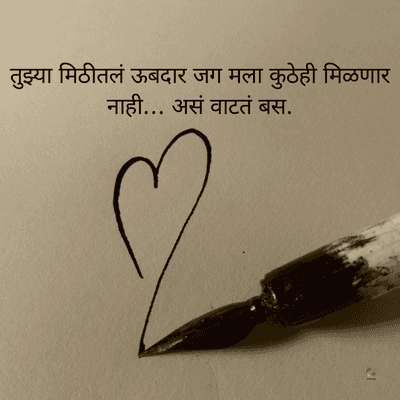 तुझ्या मिठीतलं ऊबदार जग मला कुठेही मिळणार
नाही... असं वाटतं बस.